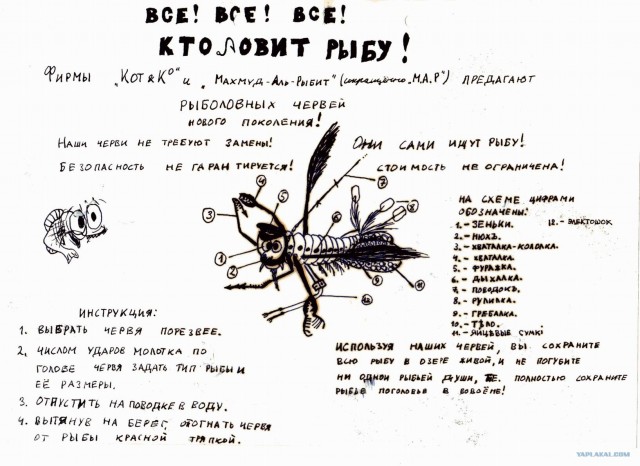 ВСЕ! ВСЕ! ВСЕ!
КТО ЛОВИТ РЫБУ!
ФИРМЫ „КОТ&К°" И „МАХМУД-АЛЬ-РЫБИТ" (сокращённо „М.А.Р") ПРЕДАГАЮТ
РЫБОЛОВНЫХ ЧЕРВЕЙ
НОВОГО ПОКОЛЕНИЯ!
НАШИ ЧЕРВИ НЕ ТРЕБУЮТ ЗАМЕНЫ! ОНИ САМИ ИЩУТ РЫБУ!
БЕЗОПАСНОСТЬ НЕ ГАРАНТИРУЕТСЯ! СТОИМОСТЬ НЕ ОГРАНИЧЕНА!
4
5
6
7
8
3
1
2
9
10
11
12
НА СХЕМЕ ЦИФРАМИ
ОБОЗНАЧЕНЫ:
1.- ЗЕНЬКИ. 12.- ЭЛЕКТОШОК
2.- НЮХЪ.
3.- ХВАТАЛКА-КОЛОЛКА.
4.- ХВАТАЛКА.
5.- ФУРАЖКА.
6.- ДЫХАЛКА.
7.- ПОВОДОКЪ.
8.- РУЛИЛКА.
9.- ГРЕБАЛКА.
10.- ТЪЛО.
11.- ЯЙЦЕВЫЕ СУМКИ
ИНСТРУКЦИЯ:
1. ВЫБРАТЬ ЧЕРВЯ ПОРЕЗВЕЕ.
2. ЧИСЛОМ УДАРОВ МОЛОТКА ПО
ГОЛОВЕ ЧЕРВЯ ЗАДАТЬ ТИП РЫБЫ И
ЕЁ РАЗМЕРЫ.
3. ОТПУСТИТЬ НА ПОВОДКЕ В ВОДУ.
4. ВЫТЯНУВ НА БЕРЕГ, ОТОГНАТЬ ЧЕРВЯ
ОТ РЫБЫ КРАСНОЙ ТРЯПКОЙ.
ИСПОЛЬЗУЯ НАШИХ ЧЕРВЕЙ, ВЫ СОХРАНИТЕ
ВСЮ РЫБУ В ОЗЕРЕ ЖИВОЙ, И НЕ ПОГУБИТЕ
НИ ОДНОЙ РЫБЬЕЙ ДУШИ, ПОЛНОСТЬЮ СОХРАНИТЕ
РЫБЬЕ ПОГОЛОВЬЕ В ВОДОЁМЕ!
YAPLAKAL.COM